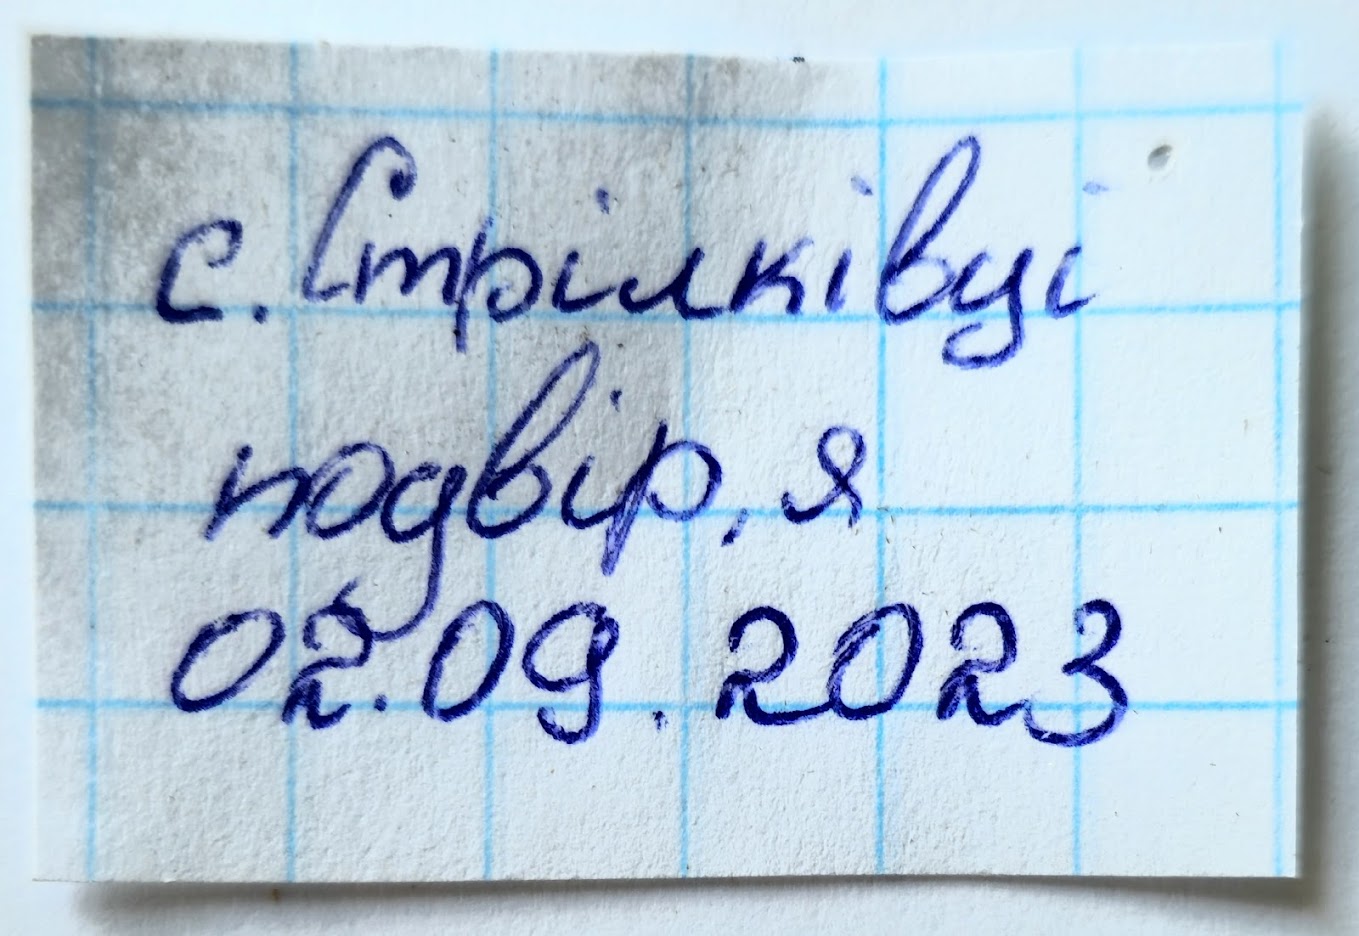 с. Стрілківці
подвір,я
02.09.2023